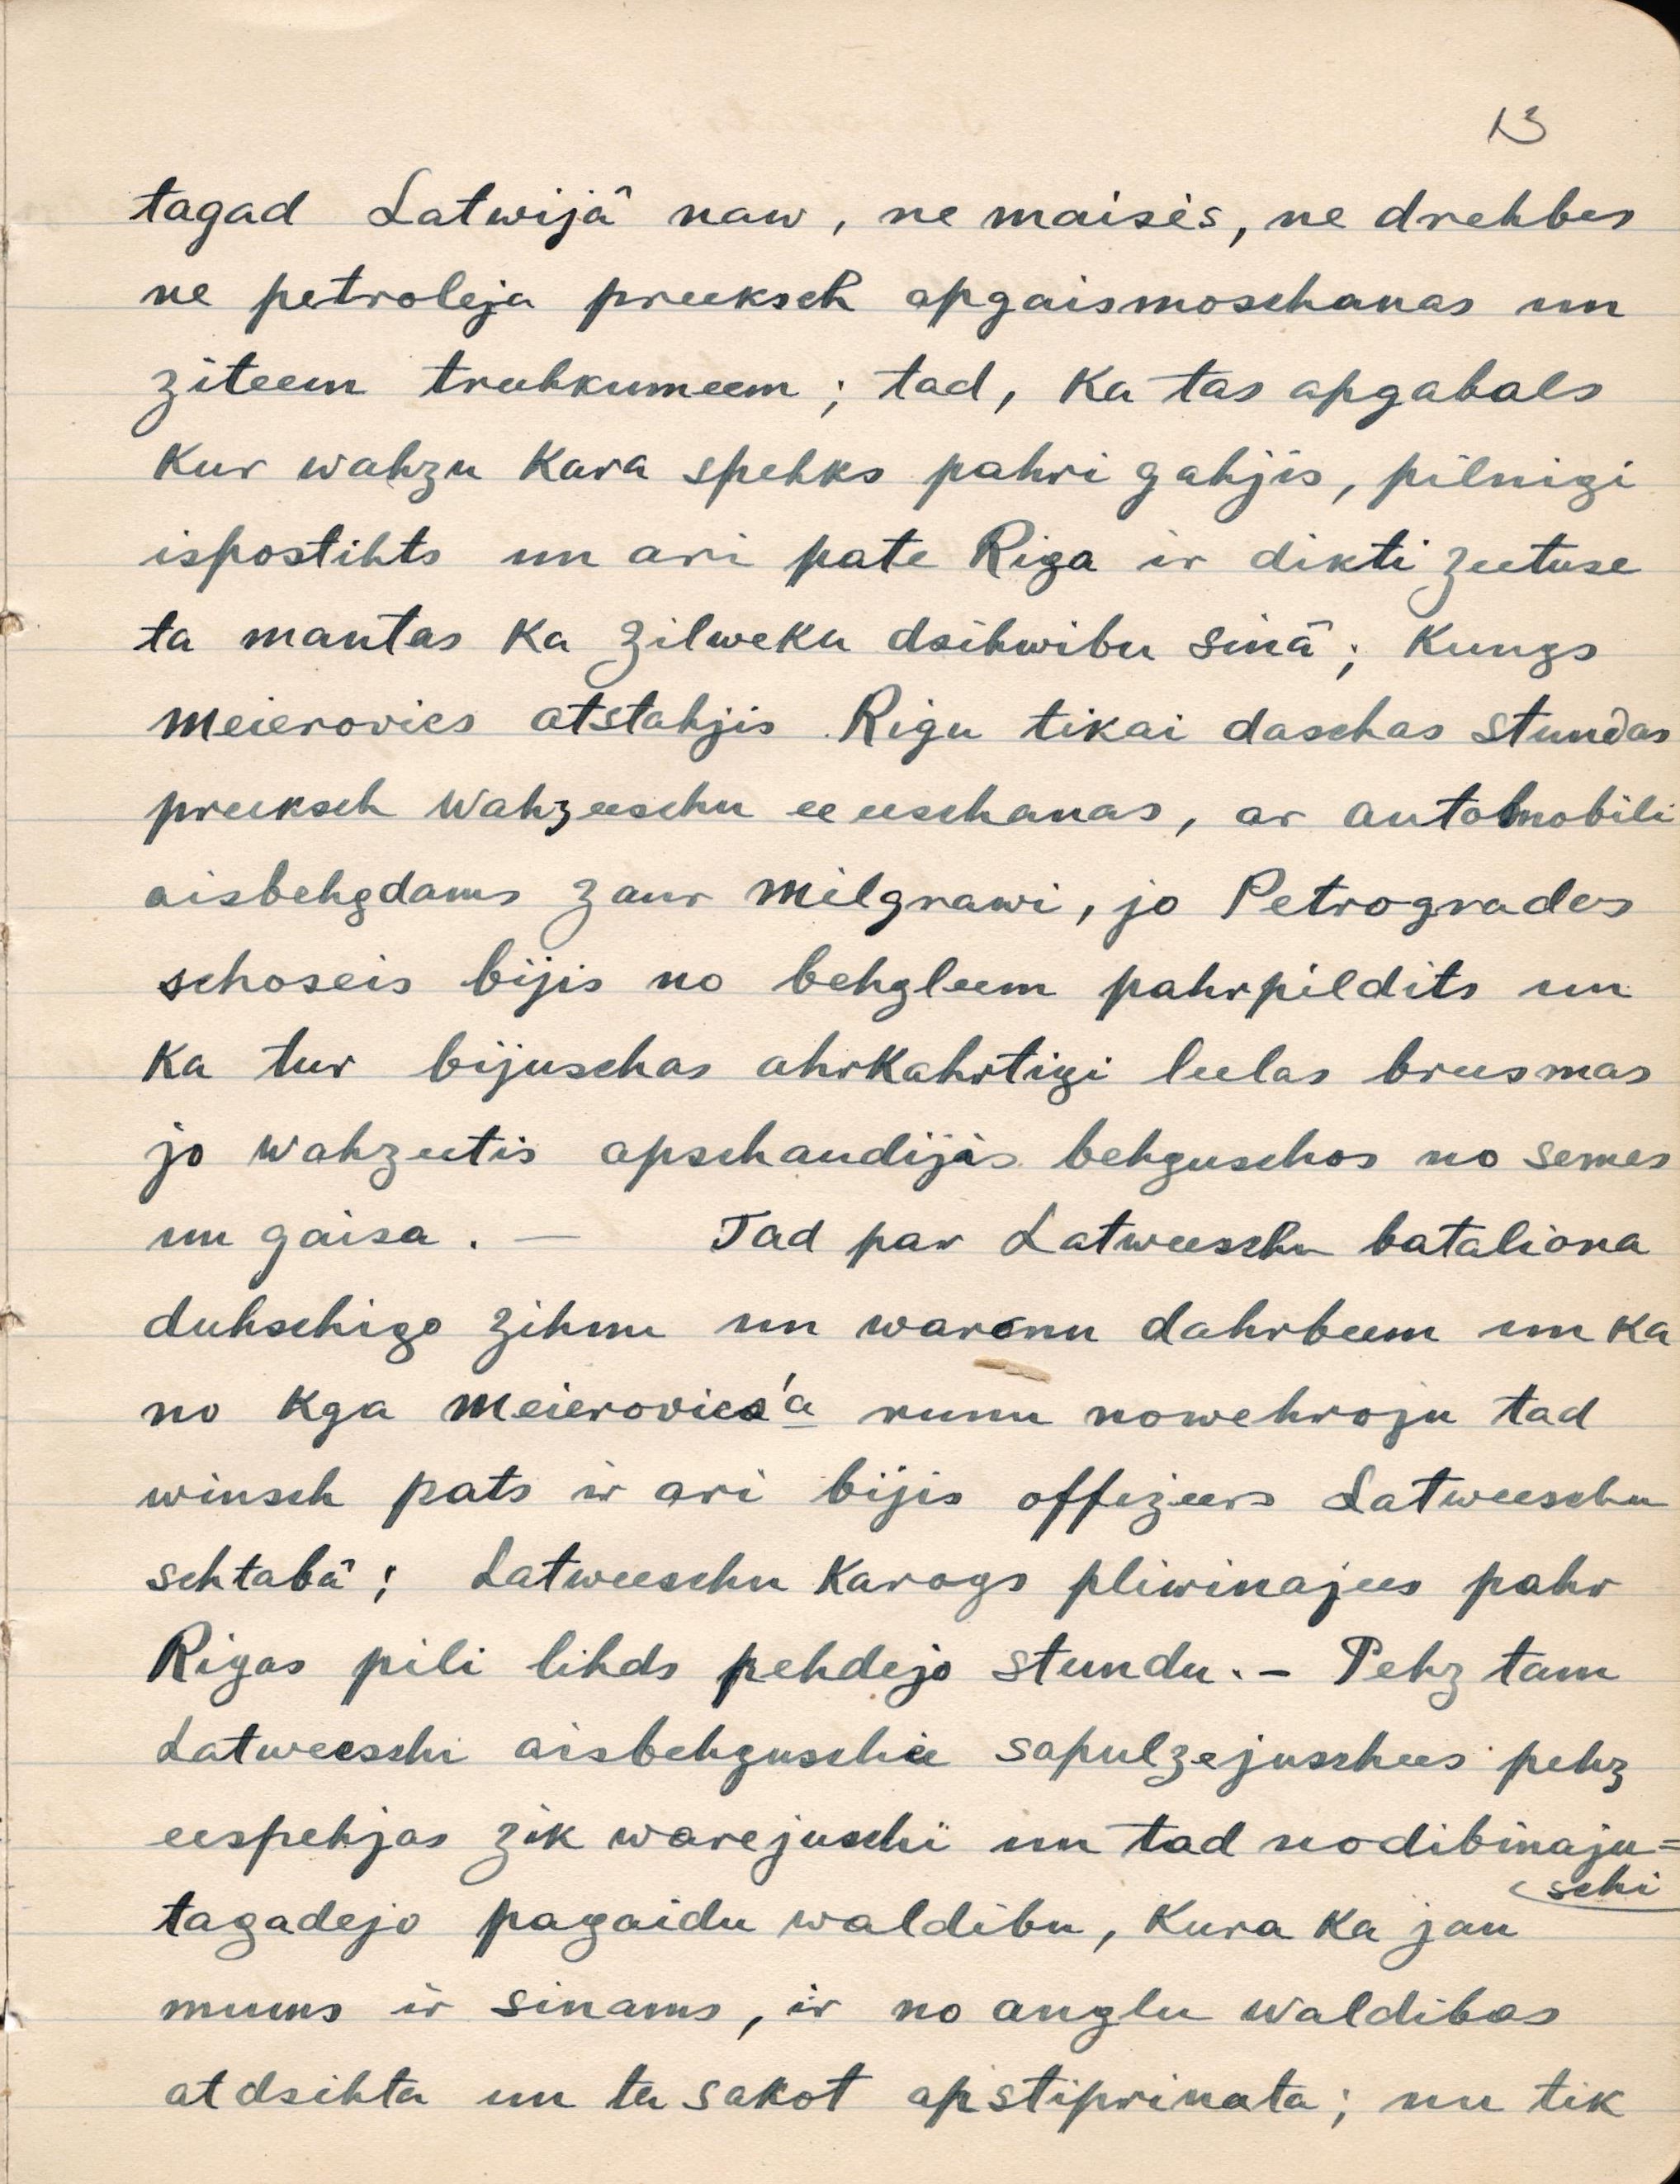 13
tagad Latwijâ naw, ne maisês, ne drehbes
ne petroleja preeksch apgaismoschanas un
ziteem truhkumeem; tad, ka tas apgabals
kur wahzu kara spehks pahri gahjis, pilnigi
ispostihts un ari pate Riga ir dikti zeetuse
ta mantas ka zilweku dsihwibu sinâ; kungs
Meierovics atstahjis Rigu tikai daschas stundas
preeksch wahzeeschu eeeeschanas, ar automobili
aisbehgdams zaur Milgrawi, jo Petrogrades
schoseis bijis no behgleem pahrpildits un
ka tur bijuschas ahrkahrtigi leelas breesmas
jo wahzeetis apschaudijis behguschos no semes
un gaisa. — Tad par Latweeschu bataliona
duhschigo zihnu un waronu dahrbeem un ka
no kga Meierovics'a runu nowehroju tad
winsch pats ir ari bijis offizeers Latweeschu
schtabâ; Latweeschu karogs pliwinajees pahr
Rigas pili lihds pehdejo stundu.- Pehz tam
Latweeschi aisbehguschie sapulzejuschees pehz
eespehjas zik warejuschi un tad nodibinaju=
schi
tagadejo pagaidu waldibu, kura ka jau
mums ir sinams, ir no anglu waldibas
atdsihta un ta sakot apstiprinata; nu tik